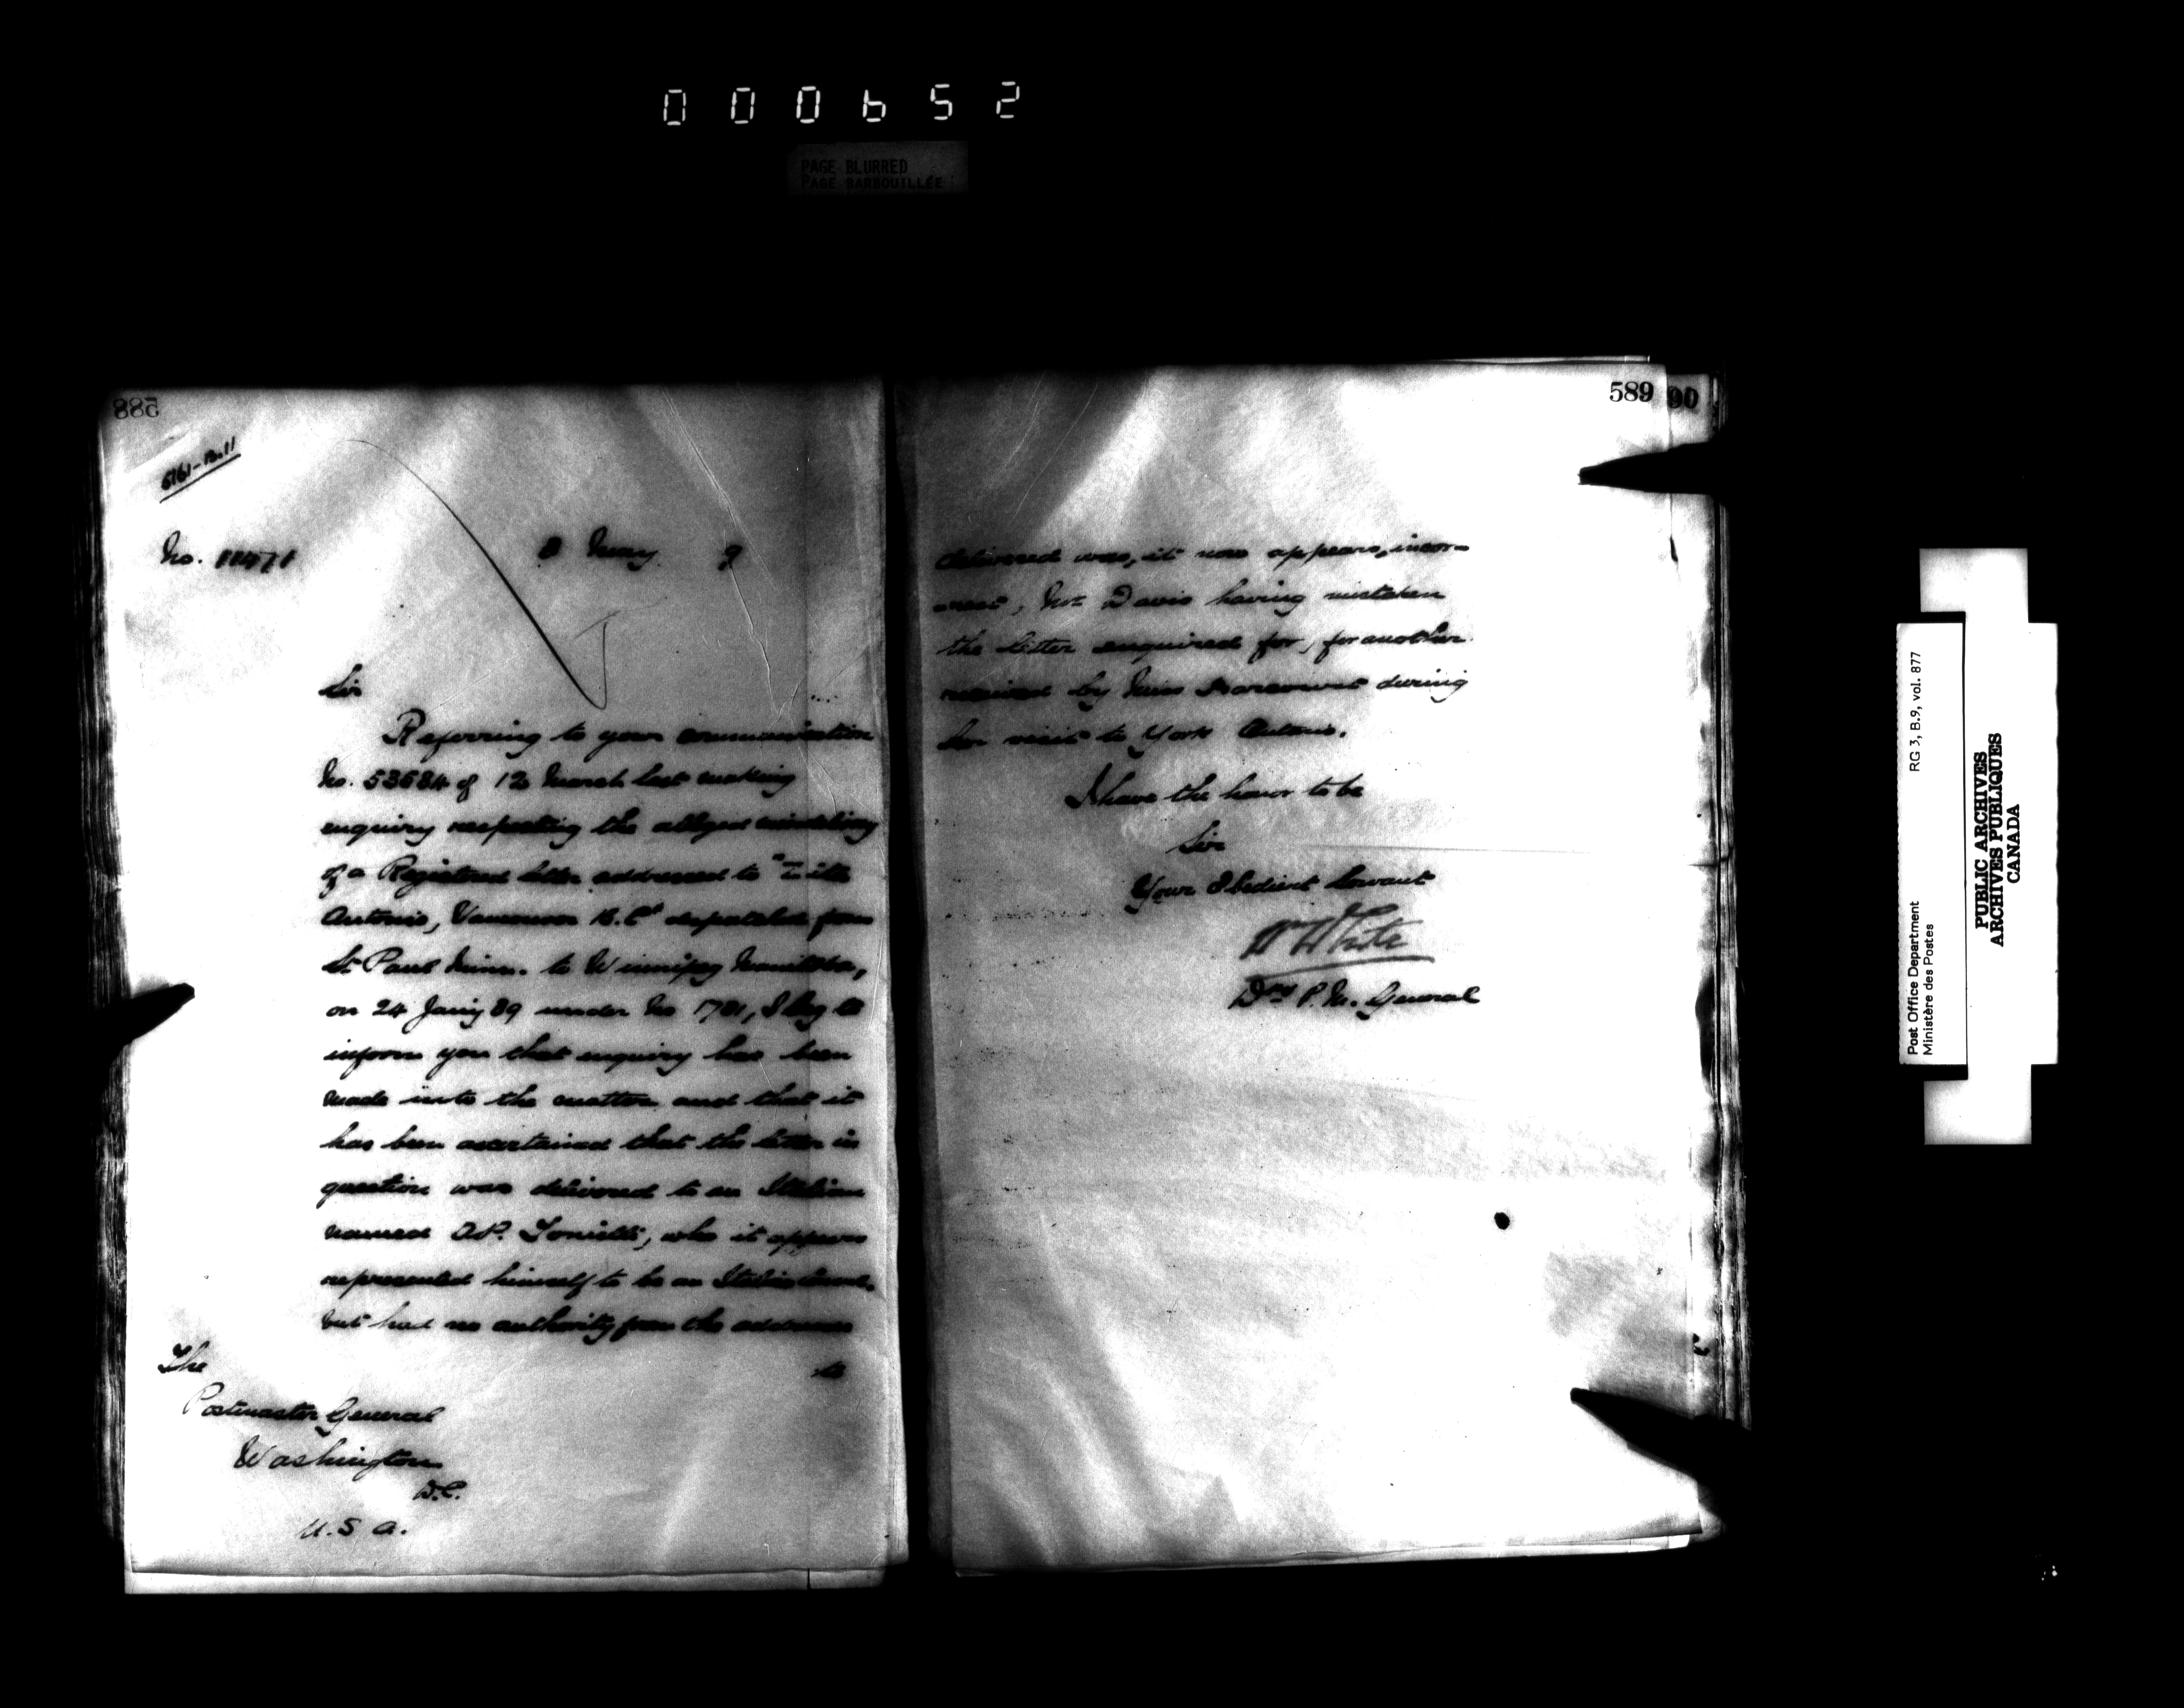 000652
PAGE BLURRED
PAGE BARBOUILLÉE
588
6161-B.11
No. 11471
8 May 9
Sir
Referring to your communication
No. 53634 of 12 March last making
enquiry respecting the alleged
of a Registered letter addressed to "Tito
Antonio, Vancouver B.C" despatched from
St Paul Minn. to Winnipeg Manitoba,
on 24 Jany 89 under No 1781, I beg to
inform you that enquiry has been
made into the matter and that it
has been ascertained that the letter in
question was delivered to an Italian
named A.P. who it appears
represented himself to be an Italian
but had no authority from the addressee
to
The
Postmaster General
Washington
D.C.
U.S.A.
589
90
delivered was, it now appears, incor-
rect, Mr. Davis having mistaken
the letter enquired for, for another
received by Miss during
her visit to York
I have the honor to be
Sir
Your Obedient Servant
W White
Dpy P. M. General
Post Office Department
Ministère des Postes
RG 3, B.9, vol. 877
PUBLIC ARCHIVES
ARCHIVES PUBLIQUES
CANADA